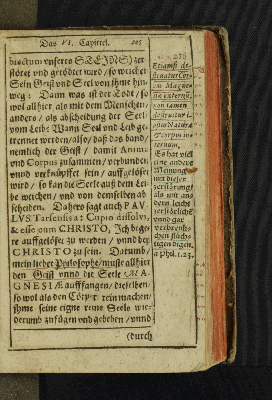 Das VI. Capitel.
biectum unseres STEINS) zer
störet und getödtet ward / so weichet
Sein Geist und Seel von ihme hin-
weg: Dann was ist der Todt / so
wol allhier als mit dem Menschen /
anders / als abscheidung der Seel
vom Leib: Wann Seel und Leib ge-
trennet werden / also / daß das band /
nemlich der Geist / damit Anima
und Corpus zusammen / verbunden
vnnd verknüpffet sein / auffgelöset
wird / so kan die Seele auß dem Lei-
be weichen / und von demselben ab
scheiden. Dahero sagt auch PAV-
LVS Tarsensis: Cupio dissolvi,
& esse cum CHRISTO, Ich bege-
re auffgelöset zu werden / vnnd bey
CHRISTO zu sein. Darumb /
mein lieber Philosophe / muste allhier
den Geist vnnd die Seele MA-
GNESIÆ auffangen / dieselben /
so wol als den Cörper rein machen /
ihme seine eigne reine Seele wie-
derumb zufügen und gebehen / vnnd
(durch
Etiamsi de-
Magne-
externũ,
non tamen
destruitur i-
psa Natura
& corpus in-
ternum,
Es hat viel
eine andere
Meinung
mit dieser
zerstörung /
als mit an-
dern leicht
zerstörlich
vnnd gar
verbrenli-
chen flüch-
tigen dingen.
a Phil. 1. 23.